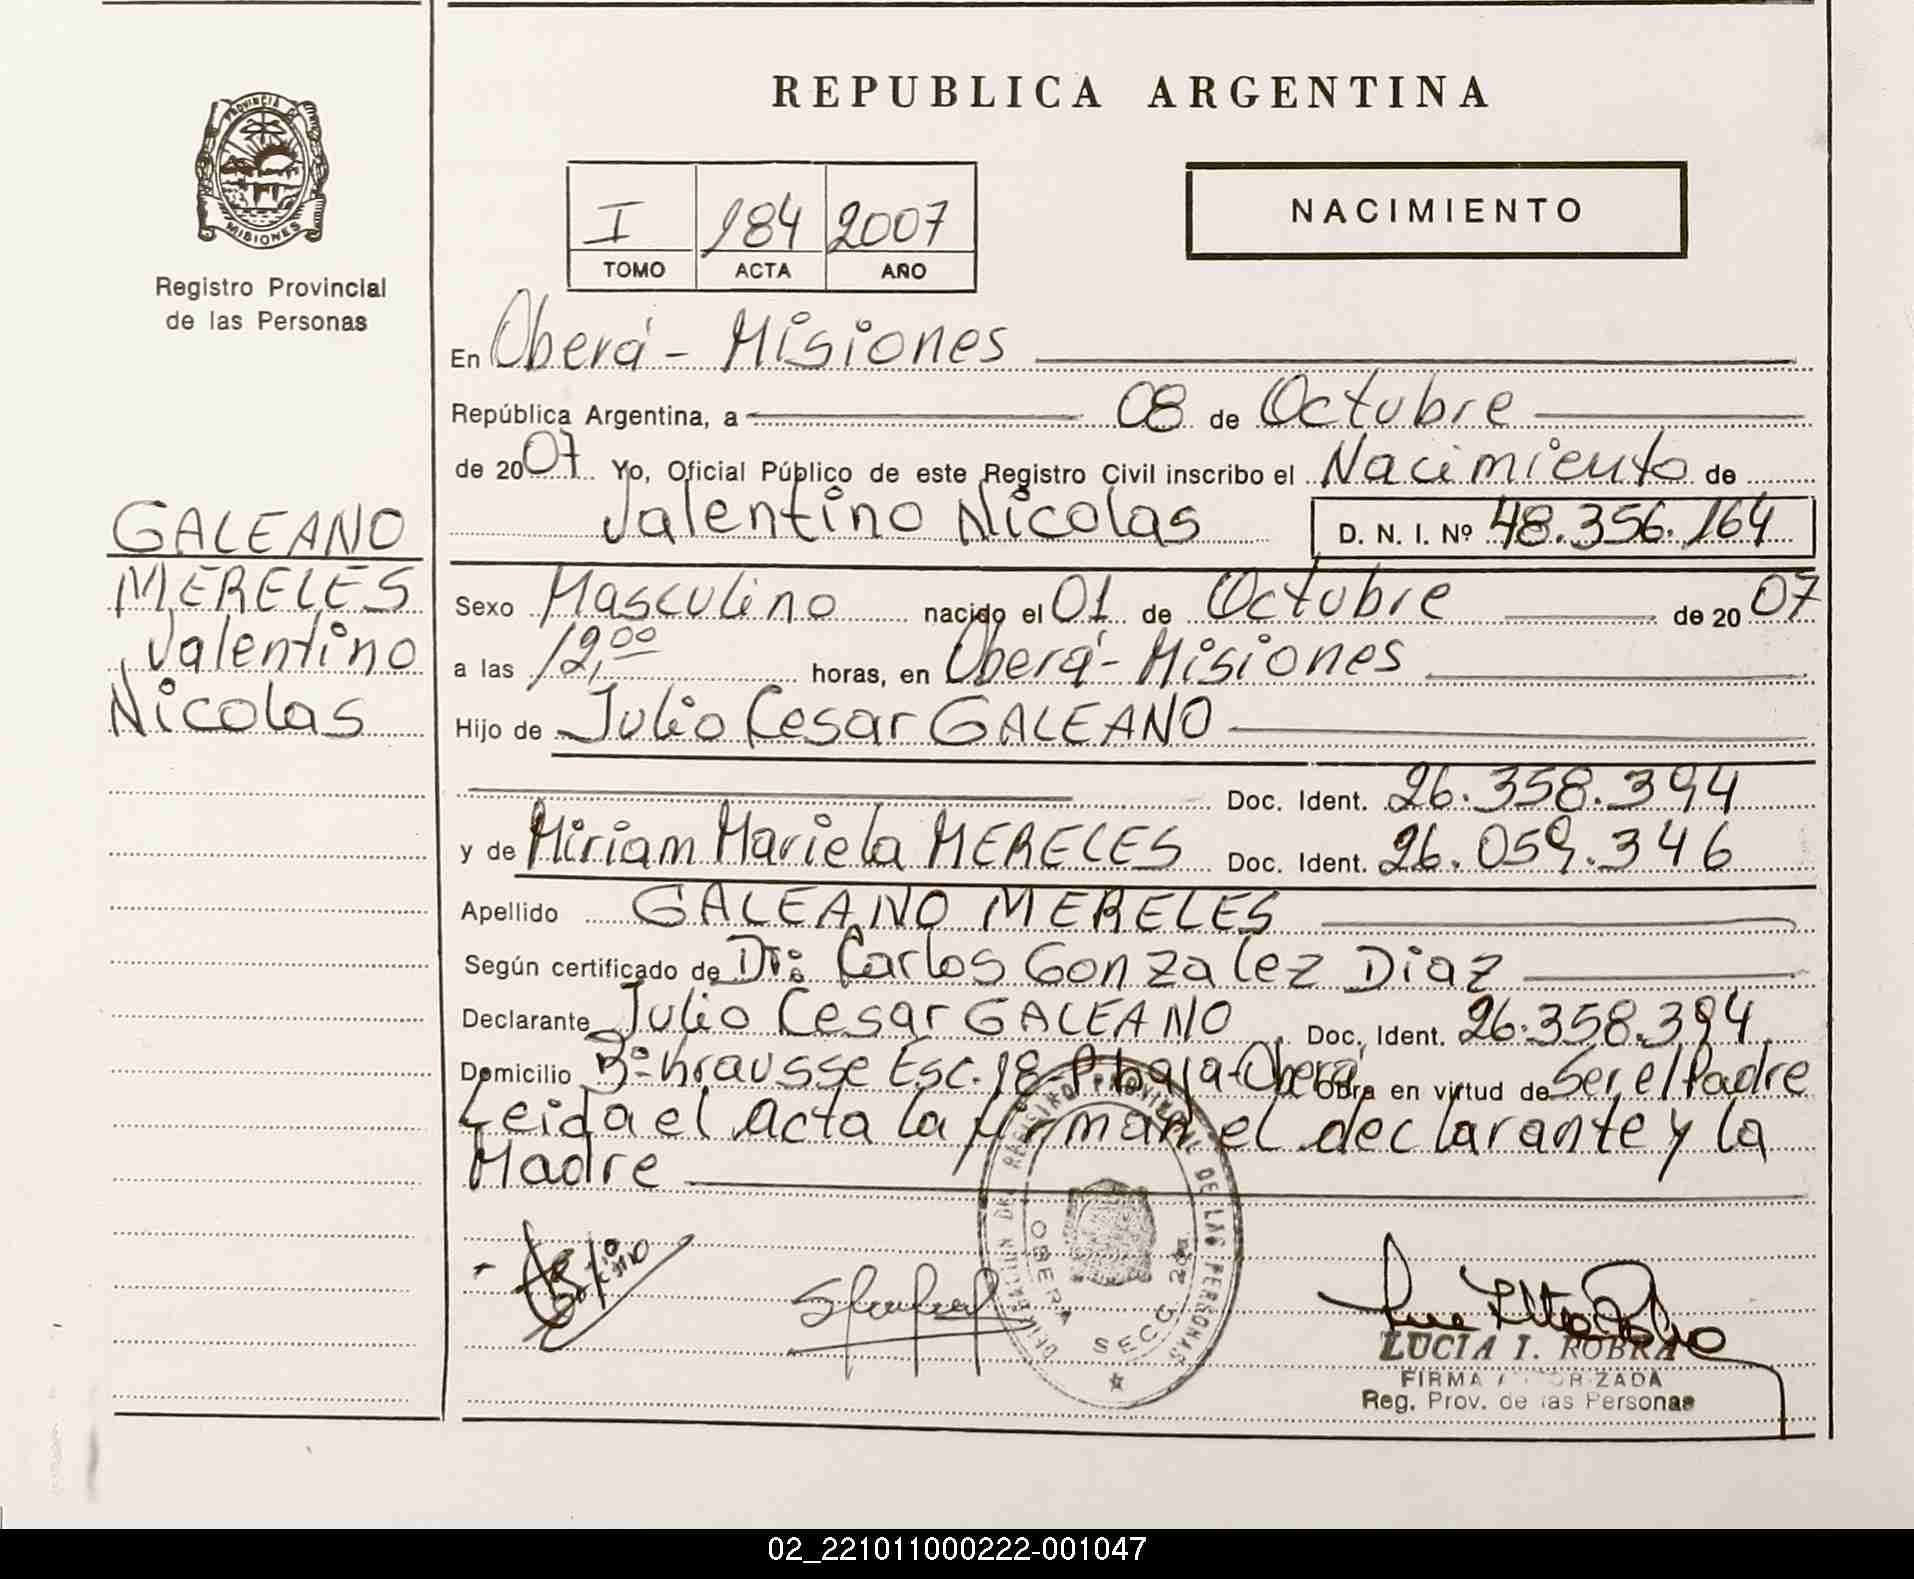 REPUBLICA ARGENTINA
PROVINCIA
MISIONES
Registro Provincial
de las Personas
NACIMIENTO
I 184 2007
TOMO ACTA AÑO
GALEANO
MERELES
Valentino
Nicolas
En Oberá - Misiones
República Argentina, a 08 de Octubre
de 2007 Yo, Oficial Público de este Registro Civil inscribo el Nacimiento de
Valentino Nicolas D. N. I. Nº 48.356.164
Sexo Masculino nacido el 01 de Octubre de 2007
a las 12,00 horas, en Oberá - Misiones
Hijo de Julio Cesar GALEANO
Doc. Ident. 26.358.394
y de Miriam Mariela MERELES Doc. Ident. 26.059.346
Apellido GALEANO MERELES
Según certificado de Dr: Carlos Gonzalez Diaz
Declarante Julio Cesar GALEANO Doc. Ident. 26.358.394
Domicilio Bº Krausse Esc. 18 P. baja - Oberá Obra en virtud de Ser el Padre
Leida el acta la firman el declarante y la
Madre
REGISTRO PROVINCIAL DE LAS PERSONAS
OBERA SECC. 2da
LUCIA I. ROBRA
FIRMA AUTORIZADA
Reg. Prov. de las Personas
02_221011000222-001047